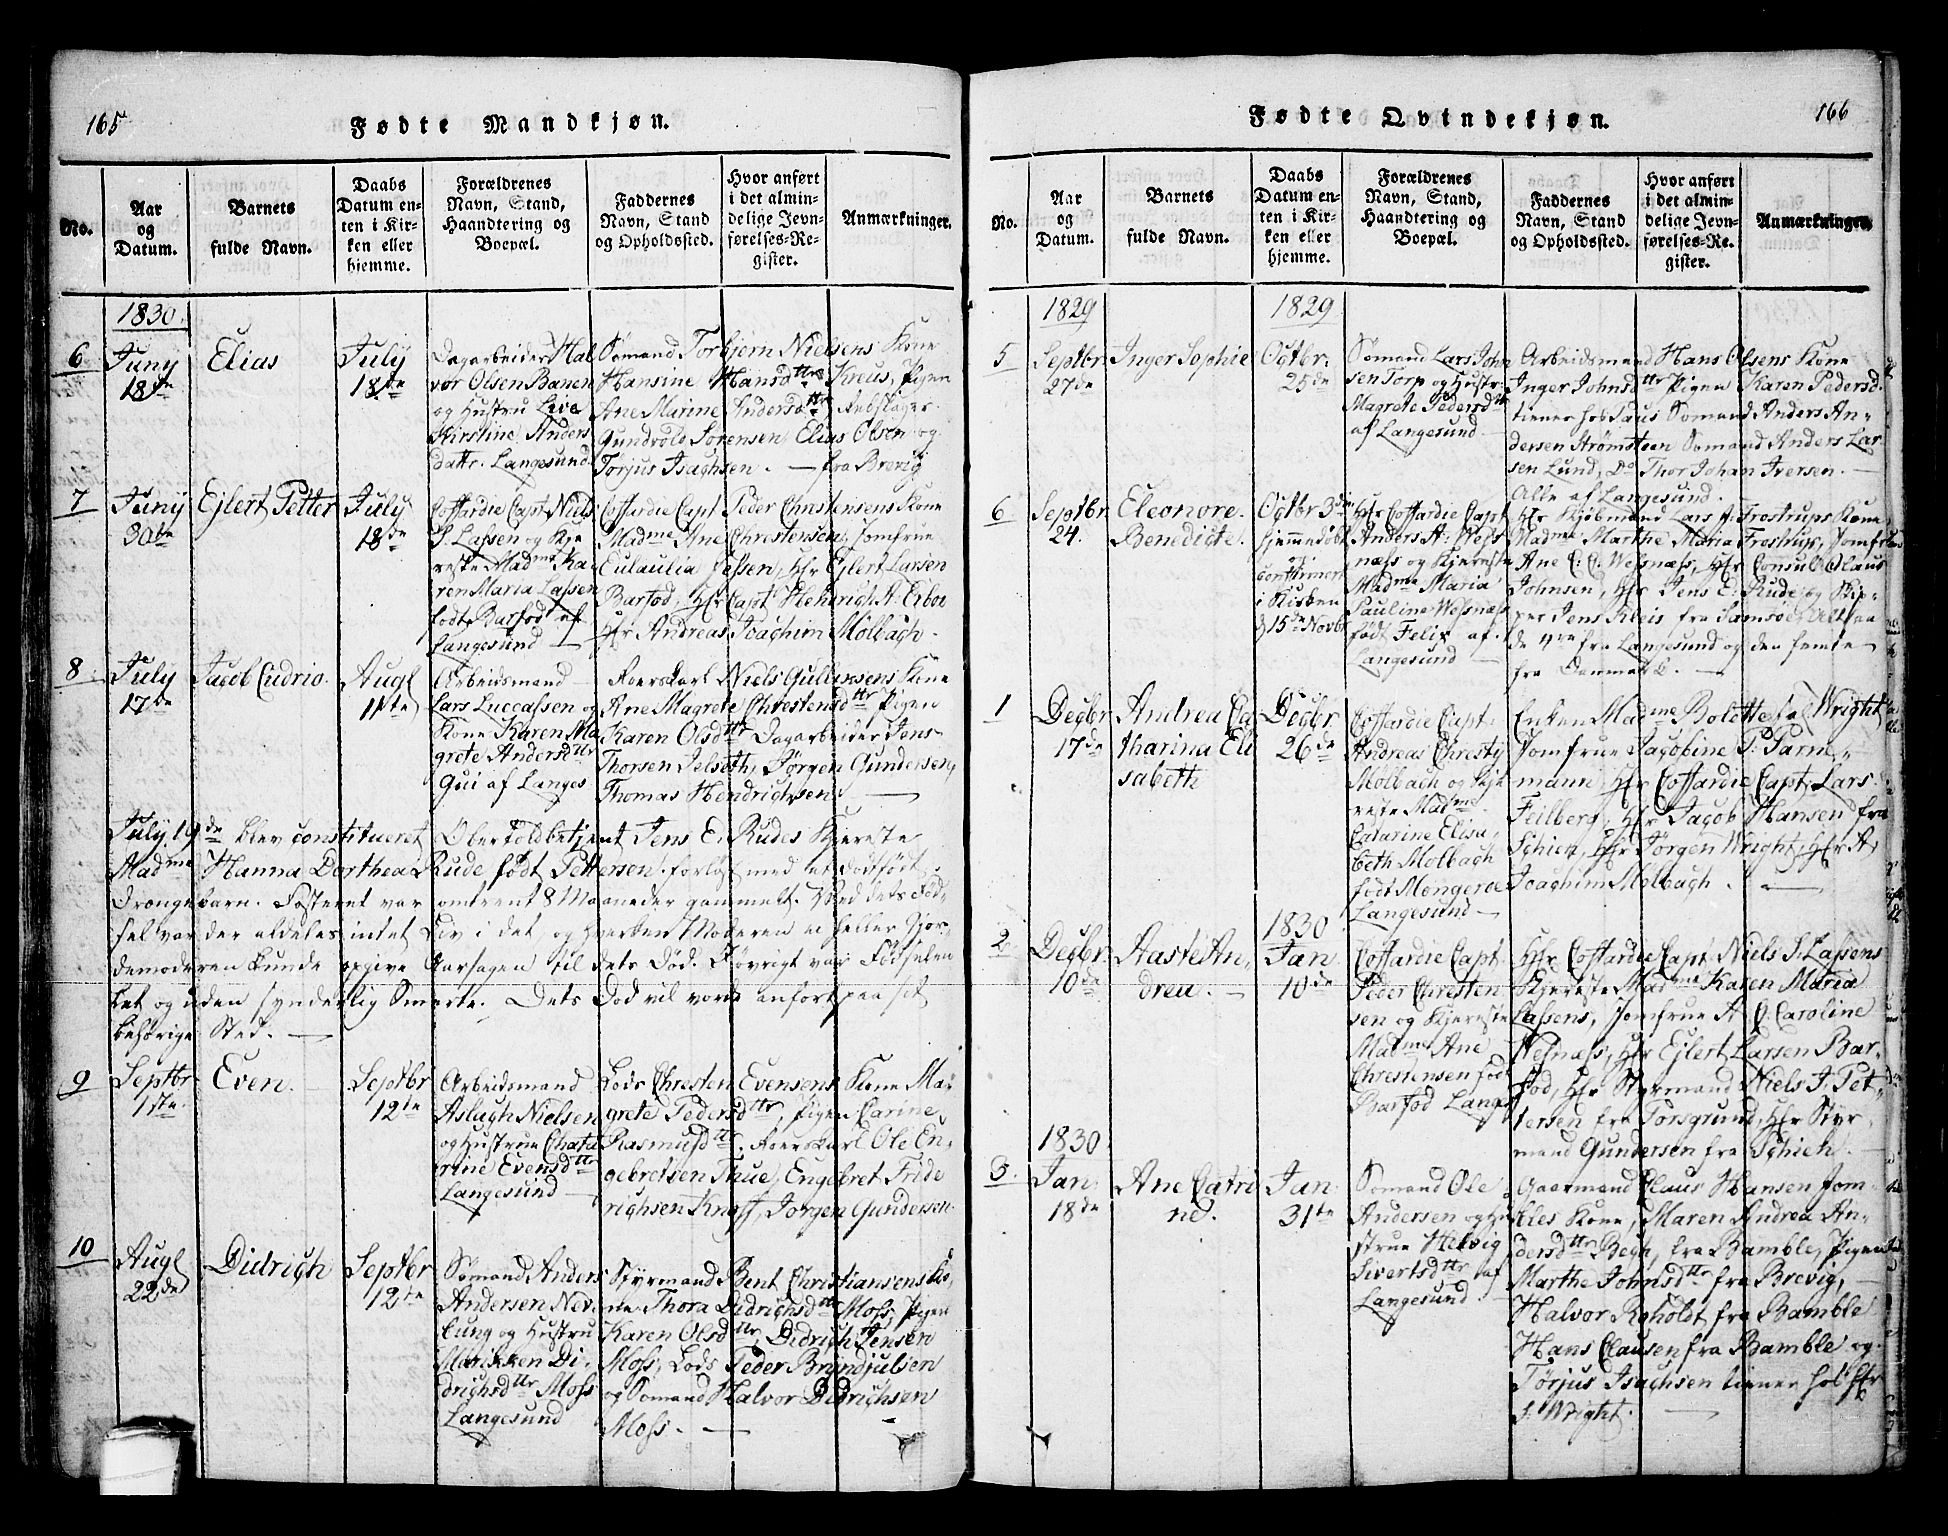 165
Fødte Mandkjøn.
No.
Aar
og
Datum.
Barnets
fulde Navn.
Daabs
Datum en-
ten i Kir-
ken eller
hjemme.
Forældrenes
Navn, Stand,
Haandtering og
Boepæl.
Faddernes
Navn, Stand
og Opholdssted.
Hvor anført
i det almin-
delige Jevn-
førelses-Re-
gister.
Anmærkninger.
1830
6
Juny
18de
Elias
July
18de
Dagarbeider Hal
vor Olsen Banen
og Hustru Live
Kirstine Anders
dattr. Langesund
Sømand Torbjørn Nielsens Kone
Hansine Hansdttr Kreus, Pigen
Ane Marine Andersdttr Rebslager
Gundrolo Sørensen Elias Olsen og
Torjus Isachsen. — fra Brevig
7
Juny
30te
Ejlert Petter
July
18de
Coffardie Capt Niels
S. Lassen og Kje
reste Madme Ka-
ren Maria Lassen
født Barfod af
Langesund —
Coffardie Capt Peder Christensens Kone
Madme Ane Christensen, Jomfrue
Eulaulia Jessen, Hr Ejlert Larsen
Barfod, Hr Capt Heinrich A. Eiboe
Hr Andreas Joachim Mölbach.
8
July
17de
Jacob Cudrio.
Augl
11te
Arbeidsmand
Lars Luccassen og
Kone Karen Ma
grete Andersdttr
Gui af Langes
Roerskarl Niels Gullixsens Kone
Ane Magrete Christensdttr Pigen
Karen Olsdttr Dagarbeider Jens
Thorsen Selseth, Jørgen Gundersen,
Thomas Hendrichsen —
July 19de blev constitueret Overtoldbetjent Jens E. Rudes Kjereste
Madme Hanna Dorthea Rude født Pettersen forløst med et dødfødt
Drengebarn. Fosteret var omtrent 8 Maaneder gammelt. Ved dets Fød-
sel var der aldeles intet Liv i det, og hverken Moderen ei heller Gjor-
demoderen kunde opgive Aarsagen til dets Død. Iøvrigt var Fødselen
let og uden synderlig Smerte. Dets Død vil vorde anført paa sit
behørige Sted. —
9
Septbr
1ste
Even.
Septbr
12te
Arbeidsmand
Aslagh Nielsen
og Hustrue Chata
rine Evensdttr
Langesund
Lods Christen Evensens Kone Ma-
grete Pedersdttr, Pigen Carine
Rasmusdttr. Roerskarl Ole En-
gebretsen Thue, Engebret Fride
richsen Knoff, Jorgen Gundersen
10
Augl
22de
Didrich
Septbr
12te
Sømand Anders
Andersen Nev-
lung og Hustru
Marikken Di-
drichsdttr Moss
Langesund
Styrmand Bent Christiansens Ko-
ne Thora Didrichsdttr Moss, Pigen
Karen Olsdttr, Didrich Jensen
Moss, Lods Peder Bryndjulsen
og Sømand Halvor Didrichsen
Moss. —
166
Fødte Qvindekjøn.
No.
Aar
og
Datum.
Barnets
fulde Navn.
Daabs
Datum en-
ten i Kir-
ken eller
hjemme.
Forældrenes
Navn, Stand,
Haandtering og
Boepæl.
Faddernes
Navn, Stand
og Opholdssted.
Hvor anført
i det almin-
delige Jevn-
førelses-Re-
gister.
Anmærkninger.
1829
1829
5
Septbr
27de
Inger Sophie
Octbr.
25de
Sømand Lars John
sen Torp og Hustr:
Magrete Pedersdttr
af Langesund
Arbeidsmand Hans Olsens Kone
Inger Johnsdttr Pigen Karen Pedersd.
tiener hos Saus Sømand Anders An-
dersen Strømsteen Sømand Anders Lar-
sen Lund, Do Thor Johan Iversen. —
Alle af Langesund.
6
Septbr
24.
Eleonore
Benedicte.
Octbr 3de
hjemmedøbt
og
confirmert
i Kirken
d 15de Novbr
Hr Coffardie Capt
Anders A: Wess
næss og Kjereste
Madme Maria
Pauline Wesnæss
født Felix af
Langesund —
Hr Kjøbmand Lars A: Frostrups Kone
Madme Marthe Maria Frostrup, Jomfr
Ane C. C. Wesnæss, Hr Consul Claus
Johnsen, Hr Jens E. Rude og Skip-
per Jens Kleis fra Samsøe, Altsaa
de 4re fra Langesund og den femte
fra Danmark. —
1
Decbr
17de
Andrea Ca
tharina Eli
sabeth
Decbr
26de
Coffardie Capt:
Andreas Christj
Molbach og Kje
reste Madme
Catarine Elisa
beth Molbach
født Mongeroe
Langesund —
Enken Madme Bolette sal Wright
Jomfrue Jacobine P: Parn-
mann, Hr Coffardie Capt, Lars
Feilberg, Hr Jacob Hansen fra
Schien, Hr Jørgen Wright, Hr A,
Joachim Molbach. —
2
Decbr
10de
Aaste An-
drea. —
1830
Jan
10de
Coffardie Capt.
Peder Christen
sen og Kjereste
Madme Ane
Christensen født
Barfod Langes
Hr Coffardie Capt. Niels S. Lassens
Kjereste Madme Karen Maria
Lassens, Jomfrue A C. Caroline
Wesnæss, Hr Ejlert Larsen Bar-
fod, Hr Styrmand Niels J. Pet-
tersen fra Porsgrund, Hr Styr
mand Gundersen fra Schien. —
1830
3
Jan
18de
Ane Catri
ne.
Jan
31te
Sømand Ole
Andersen og Hu
strue Helvig
Sivertsdttr af
Langesund
Gaarmand Claus Hansen Jom-
fles Kone, Maren Andrea An-
dersdttr Begh, fra Bamble, Pigen
Marthe Johnsdttr fra Brevig, —
Halvor Røholdt fra Bamble
Hans Clausen fra Bamble og
Tørjus Isachsen tiener hos Hr
J. Wright. —